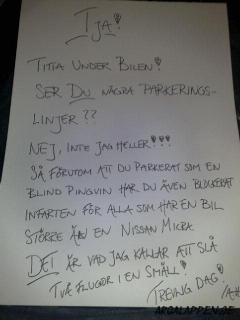 Tja!
TITTA UNDER BILEN!
SER DU NÅGRA PARKERINGS-
LINJER ??
NEJ, INTE JAG HELLER!!!
SÅ FÖRUTOM ATT DU PARKERAT SOM EN
BLIND PINGVIN HAR DU ÄVEN BLOCKERAT
INFARTEN FÖR ALLA SOM HAR EN BIL
STÖRRE ÄN EN NISSAN MICRA
DET ÄR VAD JAG KALLAR ATT SLÅ
TVÅ FLUGOR I EN SMÄLL!
TREVLIG DAG!
ARGALAPPEN.SE